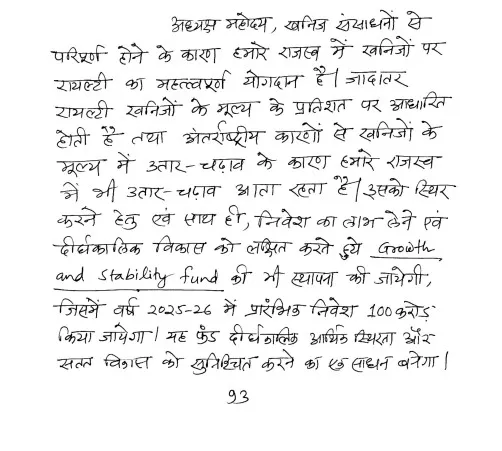 अध्यक्ष महोदय, खनिज संसाधनों से
परिपूर्ण होने के कारण हमारे राजस्व में खनिजों पर
रायल्टी का महत्त्वपूर्ण योगदान है। जादातर
रायल्टी खनिजों के मूल्य के प्रतिशत पर आधारित
होती है तथा अंतर्राष्ट्रीय कारणों से खनिजों के
मूल्य में उतार-चढ़ाव के कारण हमारे राजस्व
में भी उतार-चढ़ाव आता रहता है। इसको स्थिर
करने हेतु एवं साथ ही, निवेश का लाभ लेने एवं
दीर्घकालिक विकास को लक्षित करते हुये Growth
and Stability fund की भी स्थापना की जायेगी,
जिसमें वर्ष 2025-26 में प्रारंभिक निवेश 100 करोड़
किया जायेगा। यह फंड दीर्घकालिक आर्थिक स्थिरता और
सतत विकास को सुनिश्चित करने का एक साधन बनेगा।
93